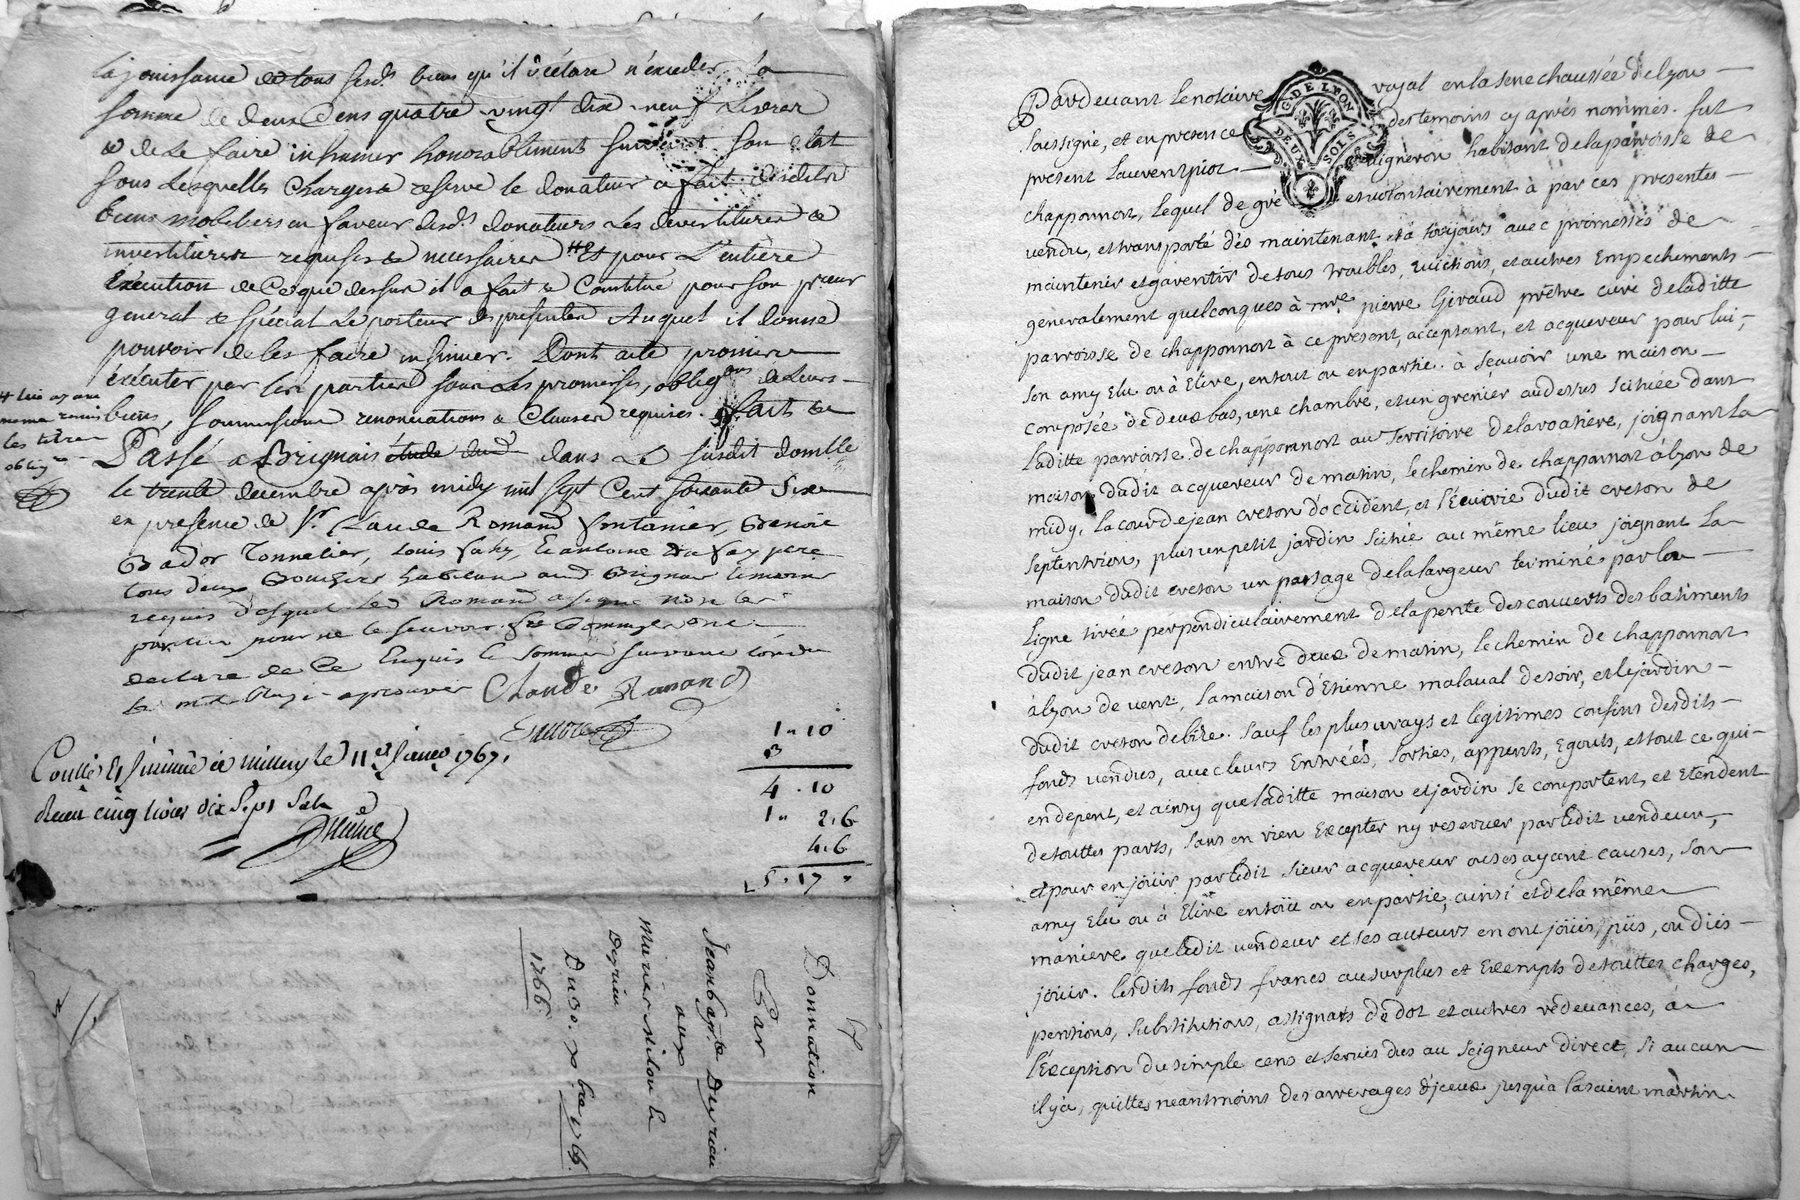 la jouissance de tous sesds biens qu'il declare n'exceder la
somme de deux Cens quatre vingt dix neuf Livres
& de le faire inhumer honorablement suivant son etat
sous Lesquelles Charges & reserve le donateur a fait
biens mobiliers en faveur desds donateurs Les devestitures &
investitures requises & necessaires # Et pour L'entiere
Exécution de Ce que dessus il a fait & Constitué pour son preur
general & spécial Le porteur des presentes Auquel il donne
pouvoir de les faire insinuer. Dont acte promis
éxécuter par les parties sous Les promesses, obligons de Leurs
biens, soumissions renonciations & Clauses requises. fait &
# luy ayant
meme remis
les titres
Passé a Brignais étude dud dans Le susdit domlle
le trente decembre après midy mil sept Cent soixante Six
en presence de Sr Claude Romand fontanier, Benoit
Bador Tonnelier, Louis faÿ, & antoine Dufay pere
tous deux habitans aud Brignais temoins
requis desquels led Romand a signé non les
parties pour ne le sçavoir
declaré de ce Enquis & sommés suivant
approuvés Claude Rumand
1 " 10
3
4 . 10
1 " 2,6
4,6
L 5 . 17 "
Contlé Et Insinué a millery le 11e Janer 1767.
Receu cinq livres dix Sept Sols
Donnation
Par
Jean bapte Durieu
aux
mariés milon &
Durieu
Du 30. Xbre 1766.
1766.
G. DE LYON
DEUX SOLS
Pardevant le notaire royal en la senechaussée de lyon
soussigné, et en presence des temoins cy après nommés. fut
present Lauvent piot vigneron habitant de la paroisse de
chapponnost, lequel de gré et volontairement à par ces presentes
vendu, et transporté dés maintenant et à toujours avec promesses de
maintenir et garentir de tous troubles, Evictions, et autres Empechements
generalement quelconques à mre pierre Giraud prêtre curé de laditte
parroisse de chapponnost à ce présent, acceptant, et acquereur pour lui,
son amy Elu ou à Elire, en tout ou en partie. à scavoir une maison
composée de deux bas, une chambre, et un grenier au dessus scituée dans
laditte paroisse de chapponnost au Territoire de la roatiere, joignant la
maison dudit acquereur de matin, le chemin de chapponnost à lyon de
midy, la cour de jean creton d'occident, et l'Ecuirie dudit creton de
septentrion, plus un petit jardin scitué au même lieu joignant la
maison dudit creton un passage de la largeur terminé par la
ligne tirée perpendiculairement de la pente des couverts des batiments
dudit jean creton entre deux de matin, le chemin de chapponnost
à lyon de vent, la maison d'Etienne malaval de soir, et le jardin
dudit creton de bize. Sauf les plus vrays et legitimes confins desdits
fonds vendus, avec leurs Entrées, sorties, appents, Egouts, et tout ce qui
en depent, et ainsy que laditte maison et jardin se comportent, et s'étendent
de touttes parts, sans en rien Excepter ny reserver par ledit vendeur,
et pour en jöuir par ledit sieur acquereur ou ses ayant causes, son
amy Elu ou à Elire en toüt ou en partie, ainsi et de la même
maniere que ledit vendeur et ses auteurs en ont joüis, püs, ou dûs
jöuir. Lesdits fonds francs au surplus et Exempts de touttes charges,
pensions, substitutions, assignats de dot et autres redevances, à
l'Exception du simple cens et servis dus au seigneur direct, si aucun
il y a, quittes neantmoins des arrerages d'jceux jusqu'a la saint martin